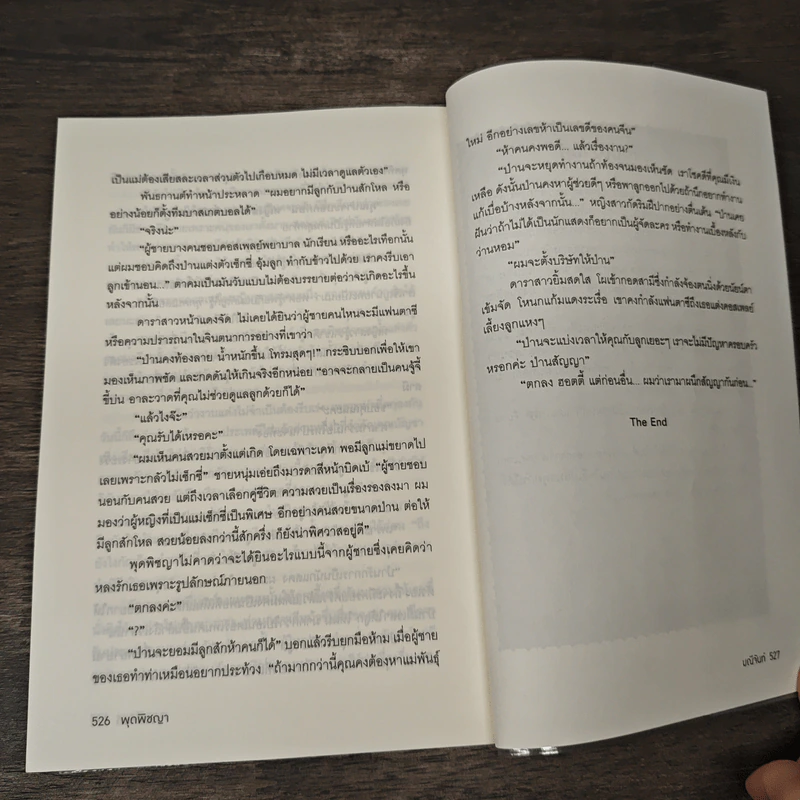 เป็นแม่ต้องเสียสละเวลาส่วนตัวไปเกือบหมด ไม่มีเวลาดูแลตัวเอง”
พันธกานต์ทำหน้าประหลาด “ผมอยากมีลูกกับป่านสักโหล หรือ
อย่างน้อยก็ตั้งทีมบาสเกตบอลได้”
“จริงน่ะ”
“ผู้ชายบางคนชอบคอสเพลย์พยาบาล นักเรียน หรืออะไรเทือกนั้น
แต่ผมชอบคิดถึงป่านแต่งตัวเซ็กซี่ อุ้มลูก ทำกับข้าวไปด้วย เราคงรีบเอา
ลูกเข้านอน...” ตาคมเป็นมันวับแบบไม่ต้องบรรยายต่อว่าจะเกิดอะไรขึ้น
หลังจากนั้น
ดาราสาวหน้าแดงจัด ไม่เคยได้ยินว่าผู้ชายคนไหนจะมีแฟนตาซี
หรือความปรารถนาในจินตนาการอย่างที่เขาว่า
“ป่านคงท้องลาย น้ำหนักขึ้น โทรมสุดๆ!” กระซิบบอกเพื่อให้เขา
มองเห็นภาพชัด และกดดันให้เกินจริงอีกหน่อย “อาจจะกลายเป็นคนจู้จี้
ขี้บ่น อาละวาดที่คุณไม่ช่วยดูแลลูกด้วยก็ได้”
“แล้วไงจ๊ะ”
“คุณรับได้เหรอคะ”
“ผมเห็นคนสวยมาตั้งแต่เกิด โดยเฉพาะเคท พอมีลูกแม่ขยาดไป
เลยเพราะกลัวไม่เซ็กซี่” ชายหนุ่มเอ่ยถึงมารดาสีหน้าบิดเบ้ “ผู้ชายชอบ
นอนกับคนสวย แต่ถึงเวลาเลือกคู่ชีวิต ความสวยเป็นเรื่องรองลงมา ผม
มองว่าผู้หญิงที่เป็นแม่เซ็กซี่เป็นพิเศษ อีกอย่างคนสวยขนาดป่าน ต่อให้
มีลูกสักโหล สวยน้อยลงกว่านี้สักครึ่ง ก็ยังน่าพิศวาสอยู่ดี”
พุดพิชญาไม่คาดว่าจะได้ยินอะไรแบบนี้จากผู้ชายซึ่งเคยคิดว่า
หลงรักเธอเพราะรูปลักษณ์ภายนอก
“ตกลงค่ะ”
“?”
“ป่านจะยอมมีลูกสักห้าคนก็ได้” บอกแล้วรีบยกมือห้าม เมื่อผู้ชาย
ของเธอทำท่าเหมือนอยากประท้วง “ถ้ามากกว่านี้คุณคงต้องหาแม่พันธุ์
526 พุดพิชญา
ใหม่ อีกอย่างเลขห้าเป็นเลขดีของคนจีน”
“ห้าคนคงพอดี... แล้วเรื่องงาน?”
“ป่านจะหยุดทำงานถ้าท้องจนมองเห็นชัด เราโชคดีที่คุณมีเงิน
เหลือ ดังนั้นป่านคงหาผู้ช่วยดีๆ หรือพาลูกออกไปด้วยถ้านึกอยากทำงาน
แก้เบื่อบ้างหลังจากนั้น...” หญิงสาวกัดริมฝีปากอย่างตื่นเต้น “ป่านเคย
ฝันว่าถ้าไม่ได้เป็นนักแสดงก็อยากเป็นผู้จัดละคร หรือทำงานเบื้องหลังกับ
ว่านหอม”
“ผมจะตั้งบริษัทให้ป่าน”
ดาราสาวยิ้มสดใส โผเข้ากอดสามีซึ่งกำลังจ้องตนนิ่งด้วยนัยน์ตา
เข้มจัด โหนกแก้มแดงระเรื่อ เขาคงกำลังแฟนตาซีถึงเธอแต่งคอสเพลย์
เลี้ยงลูกแหงๆ
“ป่านจะแบ่งเวลาให้คุณกับลูกเยอะๆ เราจะไม่มีปัญหาครอบครัว
หรอกค่ะ ป่านสัญญา”
“ตกลง ฮอตตี้ แต่ก่อนอื่น... ผมว่าเรามาผนึกสัญญากันก่อน...”
The End
มณีจันท์ 527